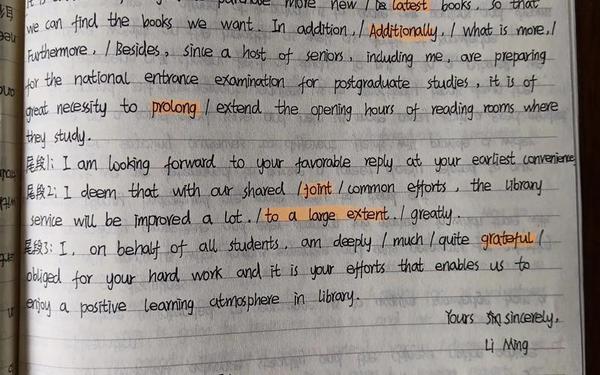 more new / latest books, so that
we can find the books we want. In addition, / Additionally, / what is more, /
Furthermore, / Besides, since a host of seniors, including me, are preparing
for the national entrance examination for postgraduate studies, it is of
great necessity to prolong / extend the opening hours of reading rooms where
they study.
尾段1: I am looking forward to your favorable reply at your earliest convenience
尾段2: I deem that with our shared / joint / common efforts, the library
service will be improved a lot. / to a large extent. / greatly.
尾段3: I, on behalf of all students, am deeply / much / quite grateful /
obliged for your hard work and it is your efforts that enables us to
enjoy a positive learning atmosphere in library.
Yours sincerely,
Li Ming